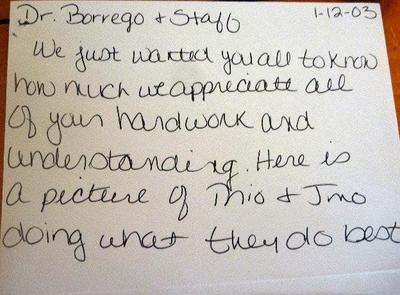 Dr. Borrego + Staff 1-12-03
We just wanted you all to know
how much we appreciate all
of your hard work and
understanding. Here is
a picture of Thio + Jmo
doing what they do best